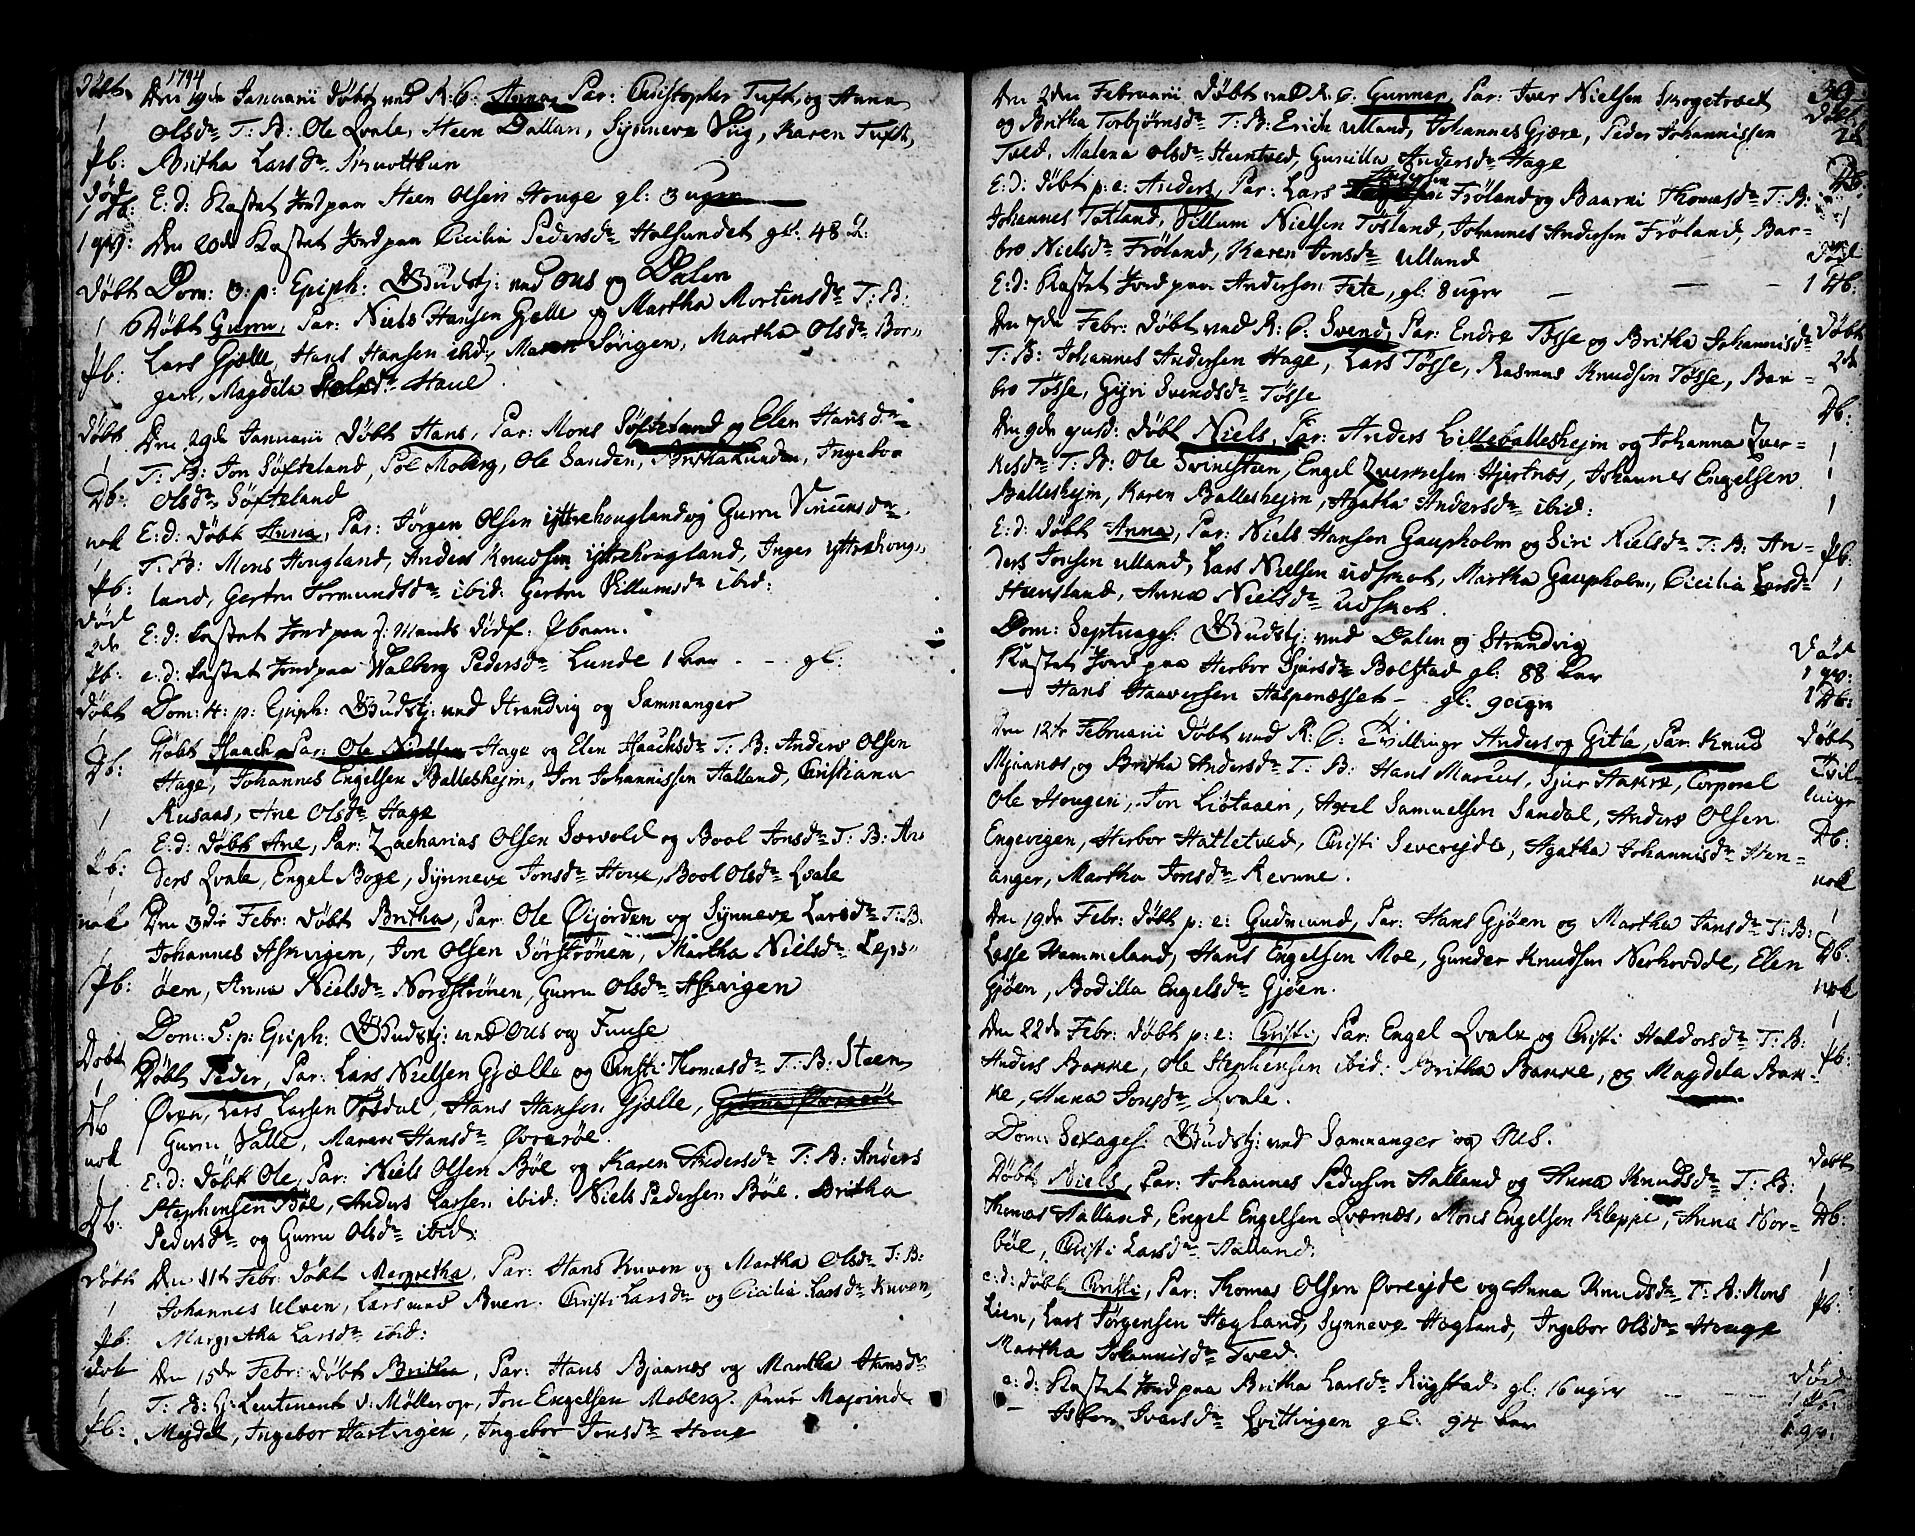 1794
Døbt. Den 19de Januarii Døbt ved K: C: Anna, Par: Christopher Tuft og Anna
1 Olsdr T: B: Ole Qvale, Steen Dallan, Synneve Vug, Karen Tuft,
Pb: Britha Larsdr Skuotthun
Død E: d: Kastet Jord paa Steen Olsen Houge gl: 3 uger
1 Db:
1 qv: Den 20de Kastet Jord paa Cicilia Pedersdr Holsundet gl: 48
Dom: 3: p: Epiph: Gudstj: ved Ous og Dalen
Døbt Døbt Gurru, Par: Niels Hansen Gjelle og Martha Mortensdr T: B:
1 Lars Gjelle, Hans Hansen ibid:, Maren Sørigen, Martha Olsdr Bor-
Pb: gen, Magdela Haue
Døbt Den 29de Januarii Døbt Hans, Par: Mons Søfteland og Elen Hansdr
1 T: B: Jon Søfteland, Pol Moberg, Ole Sanden, Britha Lunden, Ingebor
Db: Olsdr Søfteland
nok E: d: Døbt Anna, Par: Jørgen Olsen Yttrehougland og Gurru Vincensdr
1 T: B: Mons Hougland, Anders Knudsen Yttrehougland, Inger Yttrehoug-
Pb: land, Gertru Tormundsdr ibid: Gertru Villumsdr ibid:
Død E: d: Kastet Jord paa J: Mands dødf: Pbarn.
2de
Pb: e: d: Kastet Jord paa Walberg Pedersdr Lunde 1 Aar - gl:
Døbt Dom: 4: p: Epiph: Gudstj: ved Strandvig og Samnanger
1 Døbt Haach Par: Ole Nielsen Hage og Elen Haachsdr T: B: Anders Olsen
Db: Hage, Johannes Engelsen Ballesheim, Jon Johannissen Aalland, Christiana
1 Rusaas, Ane Olsdr Hage
E: d: Døbt Ane, Par: Zacharias Olsen Sørvold og Bool Jonsdr T: B: An
Pb: ders Qvale, Engel Boge, Synneve Jonsdr Houe, Bool Olsdr Qvale
nok Den 3die Febr: Døbt Britha, Par: Ole Øijorden og Synneve Larsdr T: B:
Johannes Askvigen, Jon Olsen Sørstrønen, Martha Nielsdr Leps-
1 Pb: øen, Anna Nielsdr Nordstrønen, Gurru Olsdr Askvigen
Dom: 5: p: Epiph: Gudstj: ved Ous og Fuuse
Døbt Døbt Peder, Par: Lars Nielsen Gjelle og Christi Thomasdr T: B: Steen
1 Øvre, Lars Larsen Tøsdal, Hans Hansen Gjelle,
Db Gurru Valle, Maren Hansdr Øvrerøe.
nok E: d: Døbt Ole, Par: Niels Olsen Bøe og Karen Andersdr T: B: Anders
1 Stephensen Bøe, Anders Larsen ibid: Niels Pedersen Bøe. Britha
Db: Pedersdr og Gurru Olsdr ibid:
Døbt Den 11te Febr: Døbt Margretha, Par: Hans Kuven og Martha Olsdr T: B:
1 Johannes Ulven, Lars Buen. Christi Larsdr og Cicilia Larsdr Kuven,
Pb: Margretha Larsdr ibid:
Døbt Den 15de Febr: Døbt Britha, Par: Hans Bjaanes og Martha Hansdr
1 T: B: Hr: Leutenent v: Møllerop, Jon Engelsen Moberg.
Pb: Mejdel, Ingebor Hartvigen, Ingebor Jonsdr Houg
39.
Den 2den Februarii Døbt ved K: C: Gunner, Par: Iver Nielsen Skogetvedt Døbt
og Britha Torbjørnsdr T: B: Erich Ulland, Johannes Gjære, Peder Johannissen 2de
Tved, Malena Olsdr Steentved, Gunilla Andersdr Hage Db:
E: d: Døbt p: e: Anders, Par: Lars Andersen Frøland og Baarni Thomasdr T: B:
Johannes Totland, Villum Nielsen Tøsland, Johannes Andersen Frøland, Bar-
bro Nielsdr Frøland, Karen Jonsdr Ulland Død
E: d: Kastet Jord paa Andersen Fete, gl: 8 uger 1 Db:
Den 7de Febr: Døbt ved K: C: Svend, Par: Endre Tøsse og Britha Johannisdr Døbt
T: B: Johannes Andersen Hage, Lars Tøsse, Rasmus Knudsen Tøsse, Bar- 2de
bro Tøsse, Gyri Svendsdr Tøsse Db:
Den 9de ejusd: Døbt Niels, Par: Anders Lilleballesheim og Johanna Qver- 1
kesdr T: B: Ole Svinesteen, Engel Qverkesen Hjertnæs, Johannes Engelsen 1
Ballesheim, Karen Ballesheim, Agatha Andersdr ibid: 1
E: d: Døbt Anna, Par: Niels Hansen Gaupholm og Siri Nielsdr T: B: An- Pb:
ders Jonsen Ulland, Lars Nielsen Udskot, Martha Gaupholm, Cicilia Larsdr 1
Heensland, Anna Nielsdr Udskot.
Dom: Septuages: Gudstj: ved Dalen og Strandvig
Kastet Jord paa Herbor Sjursdr Bolstad gl: 88 Aar Død 1 qv:
— Hans Haaversen Haspenæsset - gl: 9 uger 1 Db:
Den 12te Februarii Døbt ved K: C: Tvillinger Anders og Gitle, Par: Knud Døbt
Mjaanæs og Britha Andersdr T: B: Hans Marcus, Sjur Aakre, Corporal Tvil-
Ole Hougen, Jon Liøtaaen, Axel Samuelsen Sandal, Anders Olsen linger
Engevigen, Herbor Hatletved, Christi Severejde, Agatha Johannisdr Sten- Db:
anger, Martha Jonsdr Revne. nok
Den 19de Febr: Døbt p: e: Gudmund, Par: Hans Gjøen og Martha Jansdr T: B: 1
Lasse Hammeland, Hans Engelsen Moe, Gunder Knudsen Nerhovdde, Elen Db:
Gjøen, Bodilla Engelsdr Gjøen. nok
Den 22de Febr: Døbt p: e: Christi, Par: Engel Qvale og Christi Haldorsdr T: B: 1
Anders Bakke, Ole Stephensen ibid: Britha Bakke, og Magdela Bak- Pb:
ke, Anna Jonsdr Qvale.
Dom: Sexages: Gudstj: ved Samnanger og Ous.
Døbt Niels, Par: Johannes Pedersen Aalland og Anna Knudsdr T: B: Døbt 1
Thomas Aalland, Engel Engelsen Qvernæs, Mons Engelsen Kleppe, Anna Nor- Db:
bøe, Christi Larsdr Aalland.
e: d: Døbt Christi, Par: Thomas Olsen Øvrejde og Anna Knudsdr T: B: Mons 1
Lien, Lars Jørgensen Hægland, Synneve Hægland, Ingebor Olsdr Houge Pb:
Martha Johannisdr Tved.
e: d: Kastet Jord paa Britha Larsdr Rygstad gl: 16 uger Død 1 Pb:
— Isbor Ivarsdr Qvittingen gl: 94 Aar 1 qv: